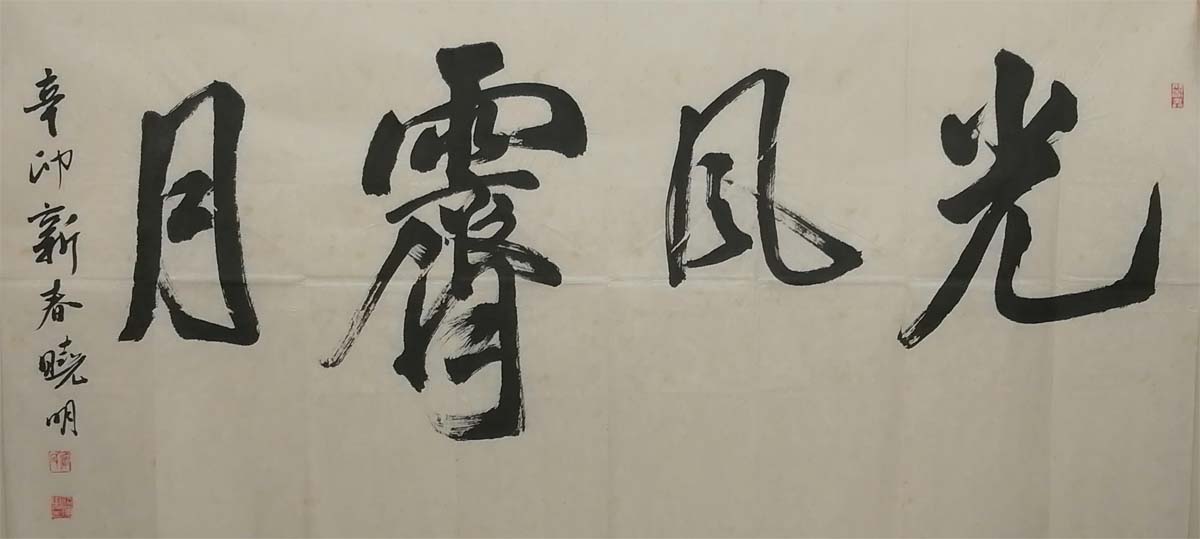 光风霽月
辛卯新春曉明